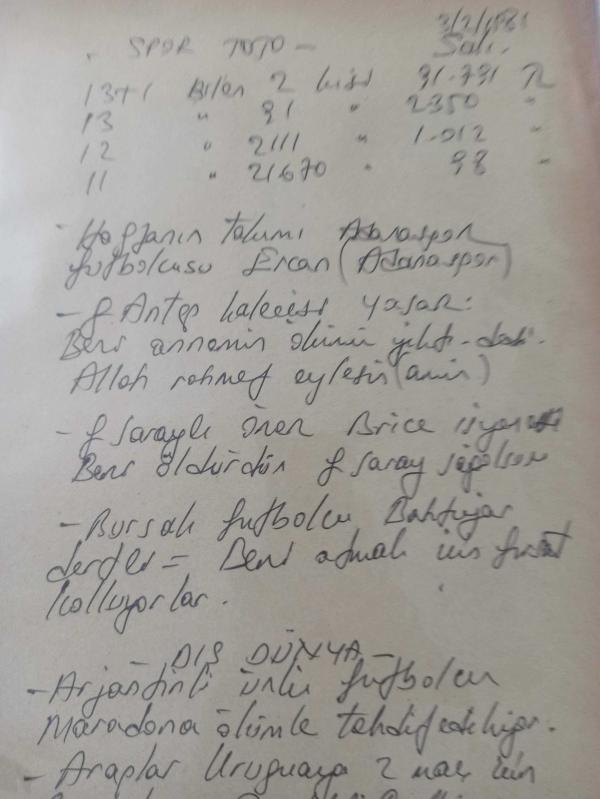 3/2/1981
- SPOR TOTO - Salı.
13+1 Bilen 2 kişi 91.791 TL
13 " 91 " 2350 "
12 " 2111 " 1.012 "
11 " 21670 " 98 "
- Haftanın takımı Adanaspor
futbolcusu Ercan (Adanaspor)
- G Antep kalecisi Yaşar:
Beni annemin ölümü yıktı dedi.
Allah rahmet eylesin (amin)
- G Saraylı Öner
Beni öldürdün G Saray
- Bursalı futbolcu Bahtiyar
dertli = Beni atmak için fırsat
kolluyorlar.
- DIŞ DÜNYA -
- Arjantinli ünlü futbolcu
Maradona ölümle tehdit ediliyor.
- Araplar Uruguaya 2 maç için